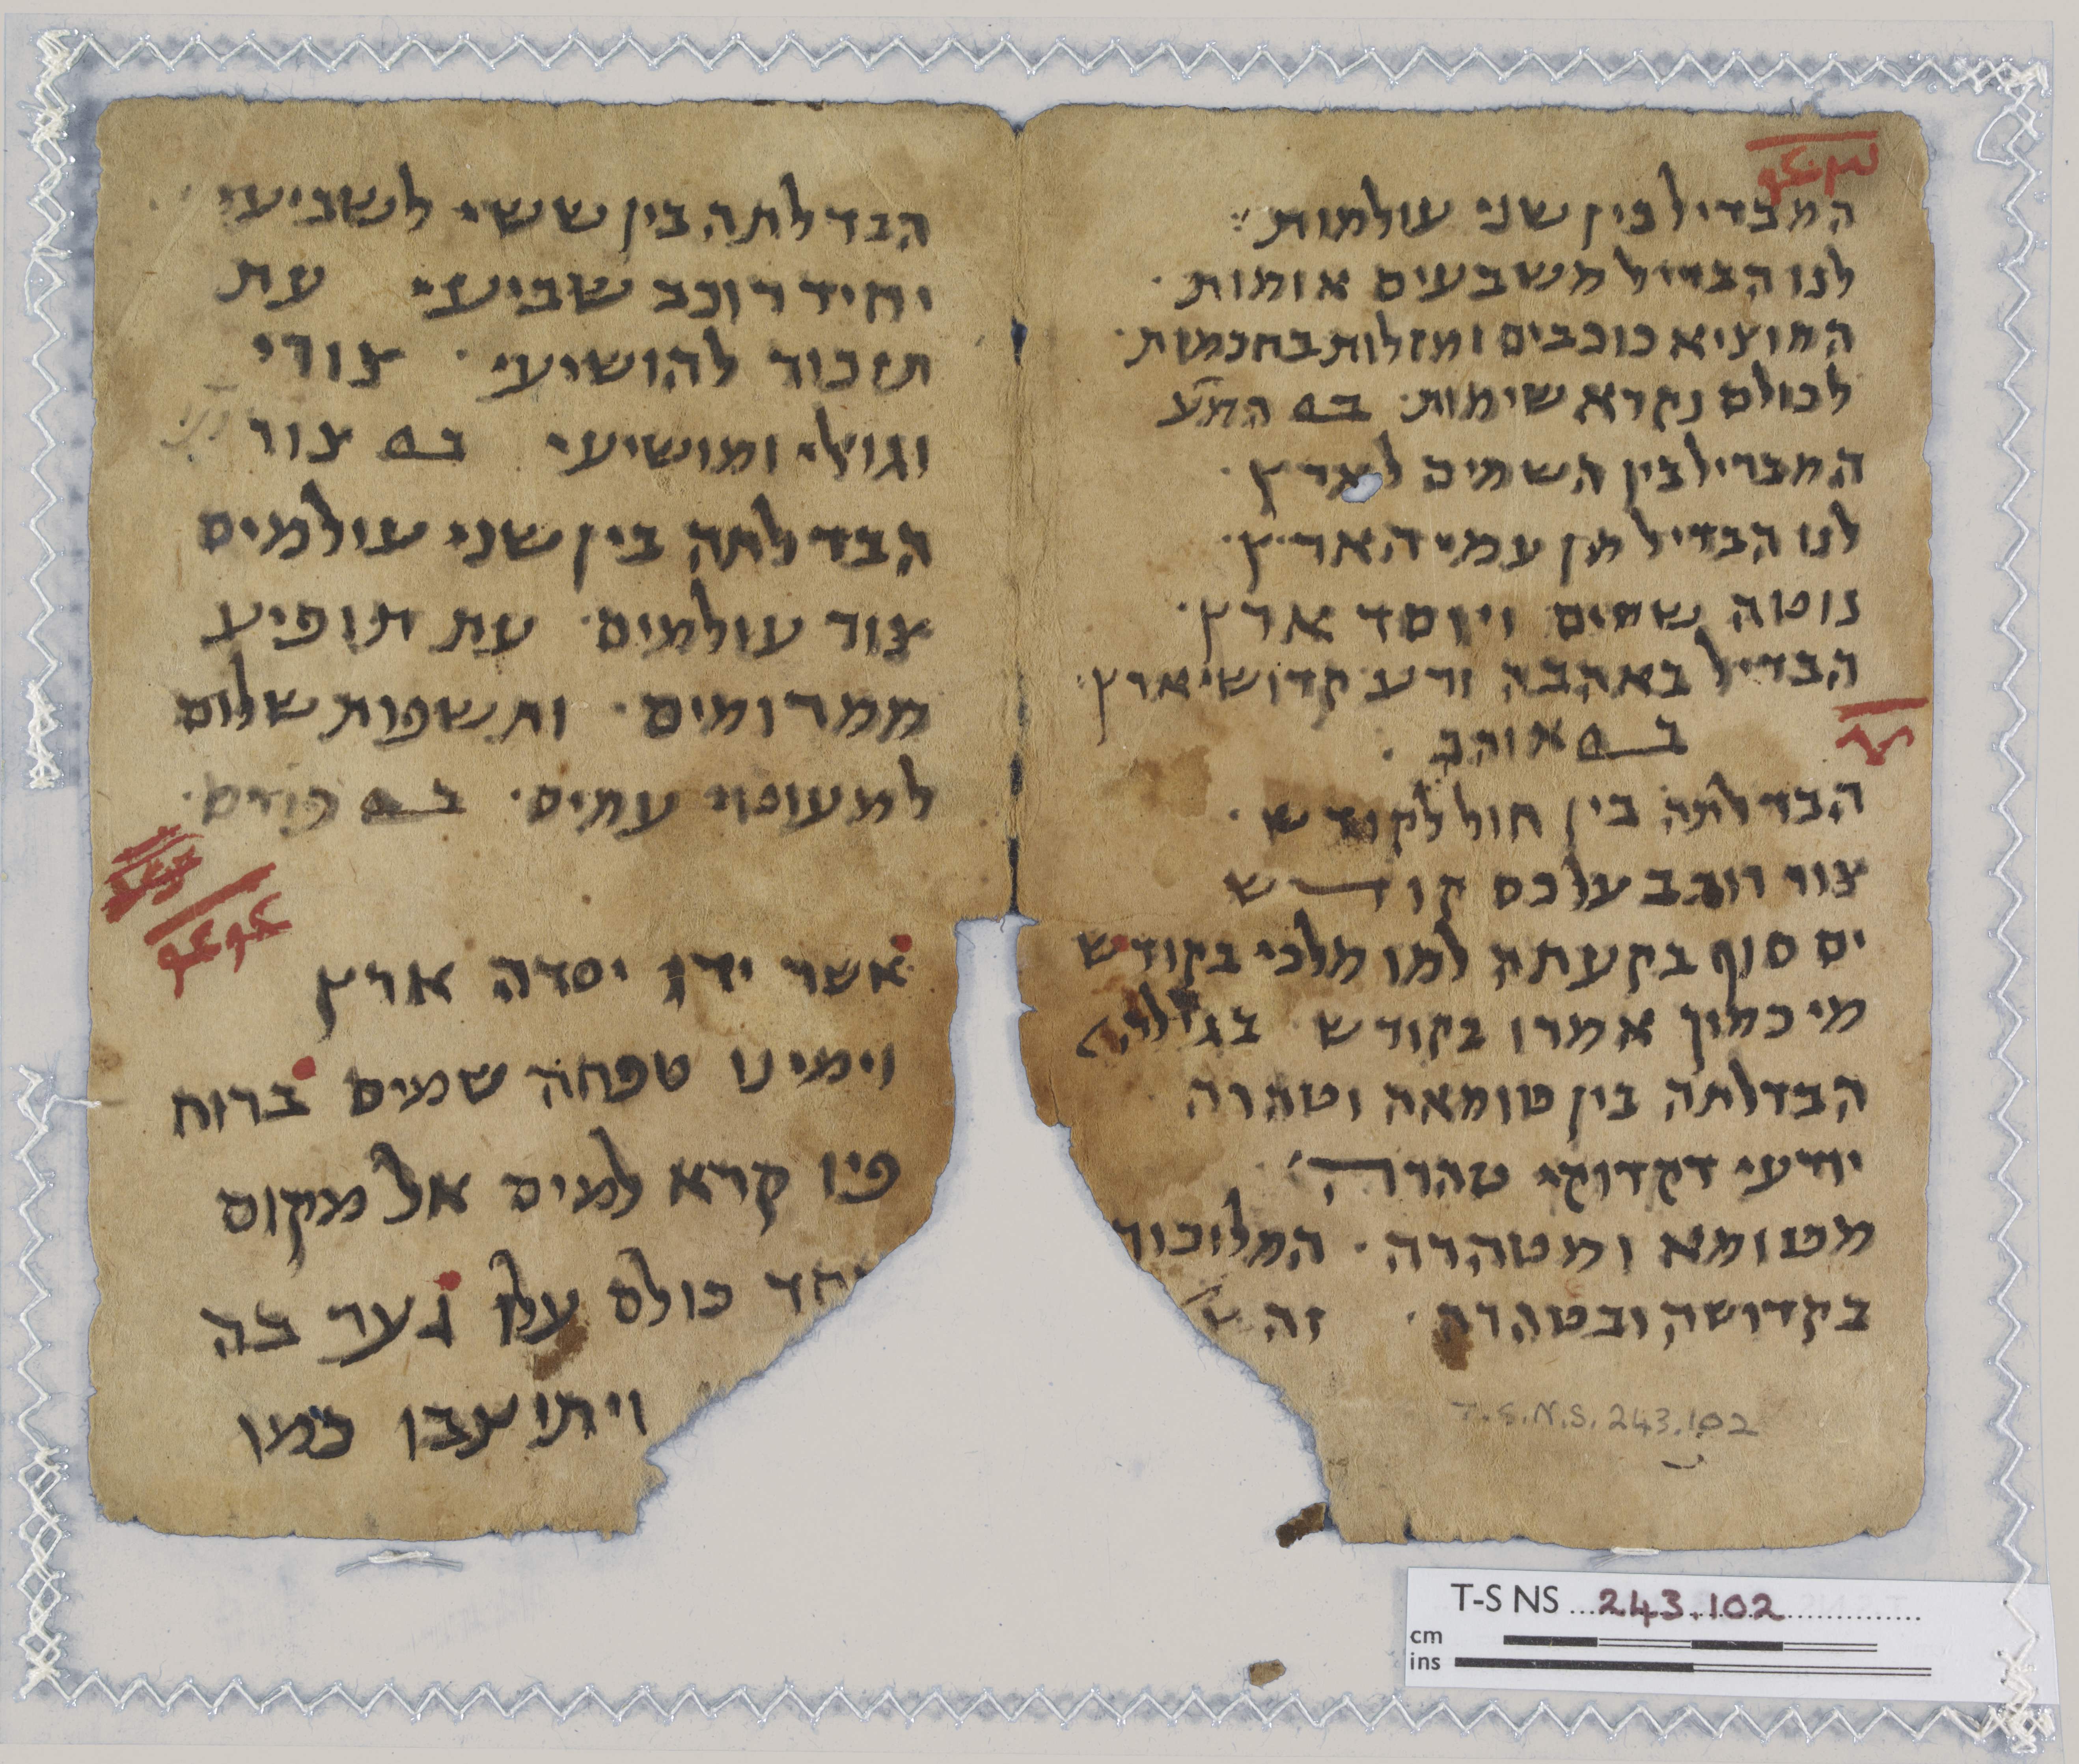 המבדיל בין שני עולמות
לנו הבדיל משבעים אומות
המוציא כוכבים ומזלות בחכמות
לכולם נקרא שימות המע
המבדיל בין השמים לארץ
לנו הבדיל מן עמי הארץ
נוטה שמים ויוסד ארץ
הבדיל באהבה זרע קדושי ארץ
אוהב
הבדלתה בין חול לקודש
צור רוכב על כס קודש
ים סוף בקעתה למו מלכי בקודש
מי כמוך אמרו בקודש
הבדלתה בין טומאה וטהרה
יודעי דקדוקי טהרה
מטומא ומטהרה המליכוך
בקדושה ובטהרה זה
T.S.N.S. 243.102
הבדלתה בין ששי לשביעי
יחיד רוכב שביעי עת
תזכור להושיעי צורי
וגואלי ומושיעי צור
הבדלתה בין שני עולמים
צור עולמים עת תופיע
ממרומים ותשפות שלום
למעוטי עמים
אשר ידו יסדה ארץ
וימינו טפחה שמים ברוח
פיו קרא למים אל מקום
אחד כולם עלו גער בה
ויתיצבו כמו
T-S NS 243.102
cm
ins